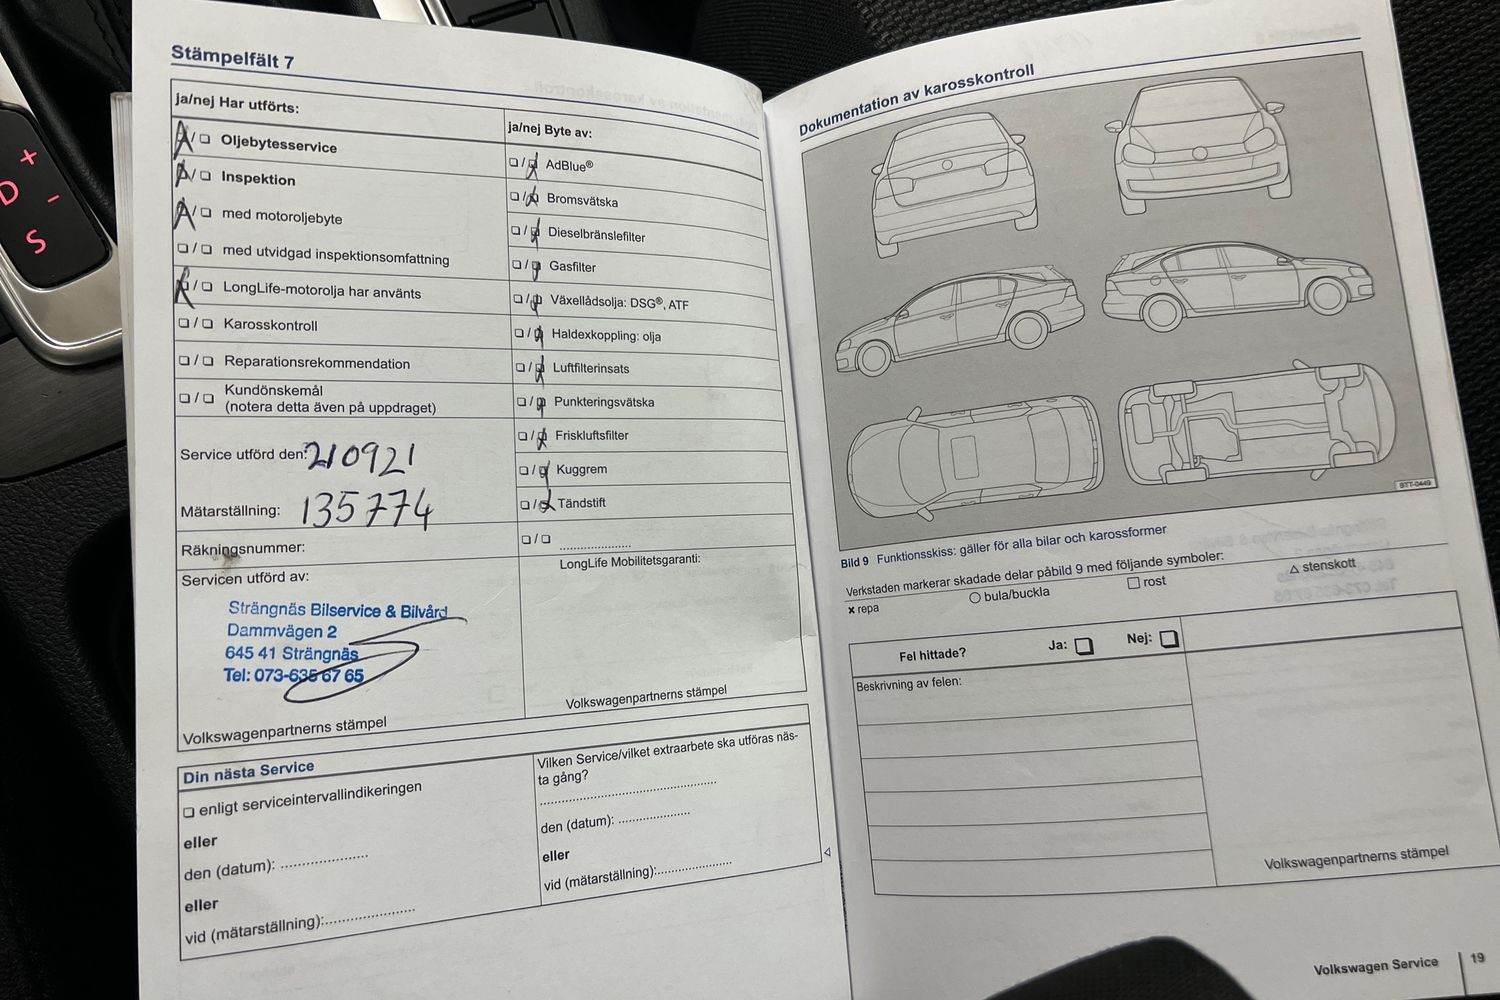 +
D
-
S
Stämpelfält 7
ja/nej Har utförts:
Oljebytesservice
Inspektion
med motoroljebyte
med utvidgad inspektionsomfattning
LongLife-motorolja har använts
Karosskontroll
Reparationsrekommendation
Kundönskemål
(notera detta även på uppdraget)
Service utförd den: 210921
Mätarställning: 135774
Räkningsnummer:
Servicen utförd av:
Strängnäs Bilservice & Bilvård
Dammvägen 2
645 41 Strängnäs
Tel: 073-635 67 65
Volkswagenpartnerns stämpel
ja/nej Byte av:
AdBlue®
Bromsvätska
Dieselbränslefilter
Gasfilter
Växellådsolja: DSG®, ATF
Haldexkoppling: olja
Luftfilterinsats
Punkteringsvätska
Friskluftsfilter
Kuggrem
Tändstift
LongLife Mobilitetsgaranti:
Volkswagenpartnerns stämpel
Din nästa Service
enligt serviceintervallindikeringen
eller
den (datum): ....................
eller
vid (mätarställning):....................
Vilken Service/vilket extraarbete ska utföras näs-
ta gång?
den (datum): ................
eller
vid (mätarställning):................
Dokumentation av karosskontroll
BTT-0449
Bild 9 Funktionsskiss: gäller för alla bilar och karossformer
Verkstaden markerar skadade delar påbild 9 med följande symboler:
× repa ○ bula/buckla □ rost △ stenskott
Fel hittade? Ja: Nej:
Beskrivning av felen:
Volkswagenpartnerns stämpel
Volkswagen Service 19